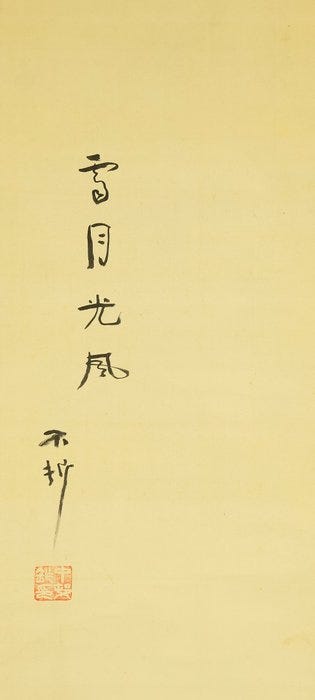 雪月光風
不折